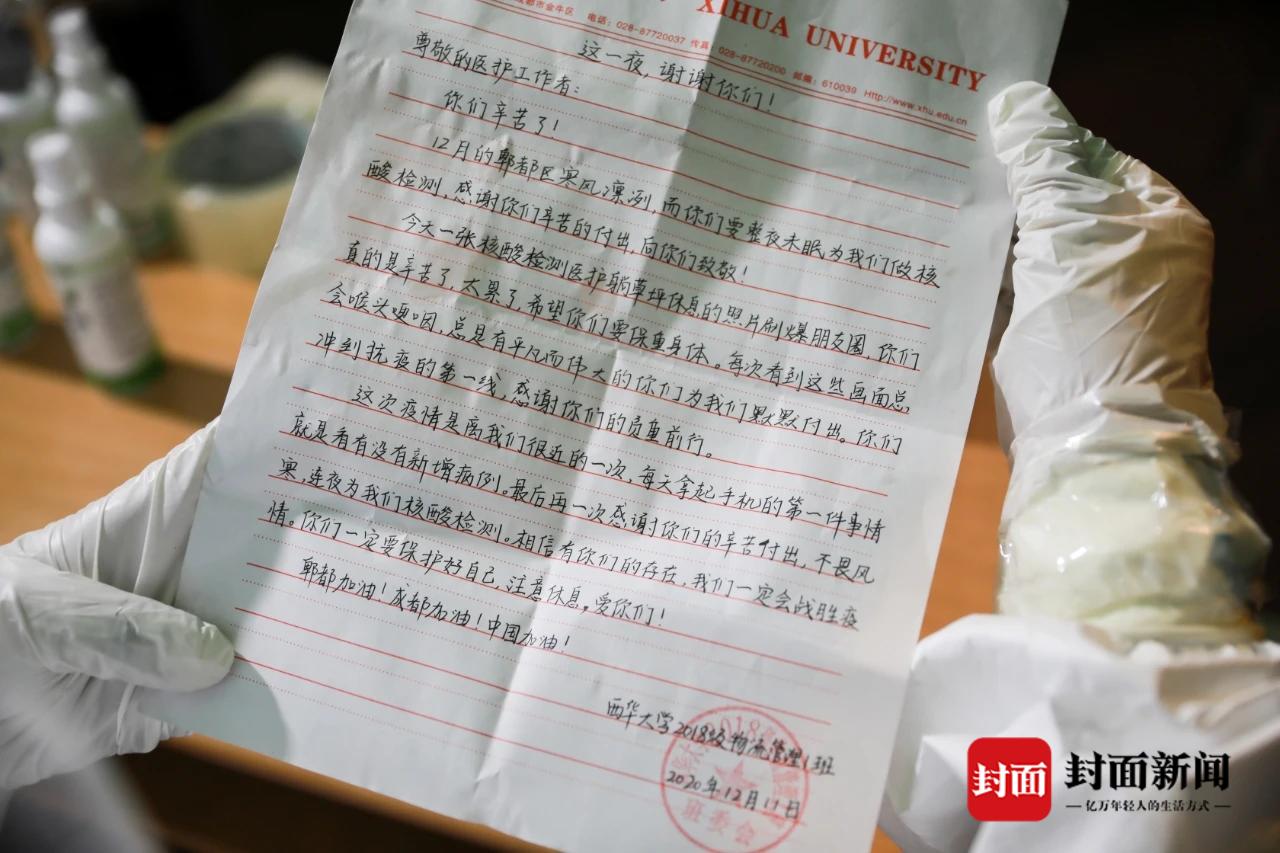 XIHUA UNIVERSITY
成都市金牛区 电话:028-87720037 传真:028-87720200 邮编:610039 Http://www.xhu.edu.cn
这一夜,谢谢你们!
尊敬的医护工作者:
你们辛苦了!
12月的郫都区寒风凛冽,而你们要整夜未眠为我们做核
酸检测,感谢你们辛苦的付出,向你们致敬!
今天一张核酸检测医护躺草坪休息的照片刷爆朋友圈,你们
真的是辛苦了,太累了,希望你们要保重身体。每次看到这些画面总
会喉头哽咽,总是有平凡而伟大的你们为我们默默付出。你们
冲到抗疫的第一线,感谢你们的负重前行。
这次疫情是离我们很近的一次,每天拿起手机的第一件事情
就是看有没有新增病例。最后再一次感谢你们的辛苦付出,不畏风
寒,连夜为我们核酸检测。相信有你们的存在,我们一定会战胜疫
情。你们一定要保护好自己,注意休息。爱你们!
郫都加油!成都加油!中国加油!
西华大学2018级物流管理1班
2020年12月17日
班委会
封面
封面新闻
亿万年轻人的生活方式